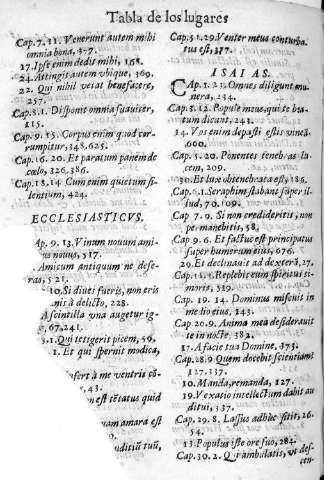 Tabla de los lugares
Cap. 7. 11. Venerunt autem mihi
omnia bona, 377.
17. Ipse enim dedit mihi, 168.
24. Attingit autem vbique, 369.
22. Qui nihil vetat benefacere,
257.
Cap. 8. 1. Disponit omnia suauiter,
115.
Cap. 9. 15. Corpus enim quod cor-
rumpitur, 348. 625.
Cap. 16. 20. Et paratum panem de
cœlo, 326, 386.
Cap. 18. 14 Cum enim quietum si-
lentium, 424.
ECCLESIASTICVS.
ap. 9. 13. Vinum nouum ami-
nouus, 517.
Amicum antiquum ne dese-
ras, 521.
10. Si diues fueris, non eris
à delicto, 228.
A scintilla vna augetur ig-
67. 241.
3. 1. Qui tetigerit picem, 56.
1. Et qui spernit modica,
à me ventris
43.
est tatus quid
amara est
Cap. 51. 29. Venter meus conturba-
tus est, 317.
ISAIAS.
CAp. 1. 23. Omnes diligunt mu-
nera, 234.
Cap. 3. 12. Popule meus, qui te bea-
tum dicunt, 243.
14. Vos enim depasti estis vineã
660.
Cap. 5. 20. Ponentes tenebras lu-
cem, 209.
30. Et lux obtenebrata est, 186.
Cap. 6. 1. Seraphim stabant super il-
lud, 70. 109.
Cap. 7. 9. Si non credideritis, non
permanebitis, 58.
Cap. 9. 6. Et factus est principatus
super humerum eius, 976.
20. Et declinauit ad dexterã, 27.
Replebit eum spiritus ti-
moris, 519.
Cap. 19. 14. Dominus miscuit in
medio eius, 143.
Cap. 20. 9. Anima meã desiderauit
te in nocte, 382.
17. A facie tua Domine, 373.
Cap. 28. 9 Quem docebit scientiam?
127. 337.
10. Manda, remanda, 127.
19. Vexatio intellectum dabit au
ditui, 337.
Cap. 29. 8. Lassus adhuc sitit, 26.
54.
13. Populus iste ore suo, 284.
Cap. 30. 2. Qui ambulatis, vt des-
cen-